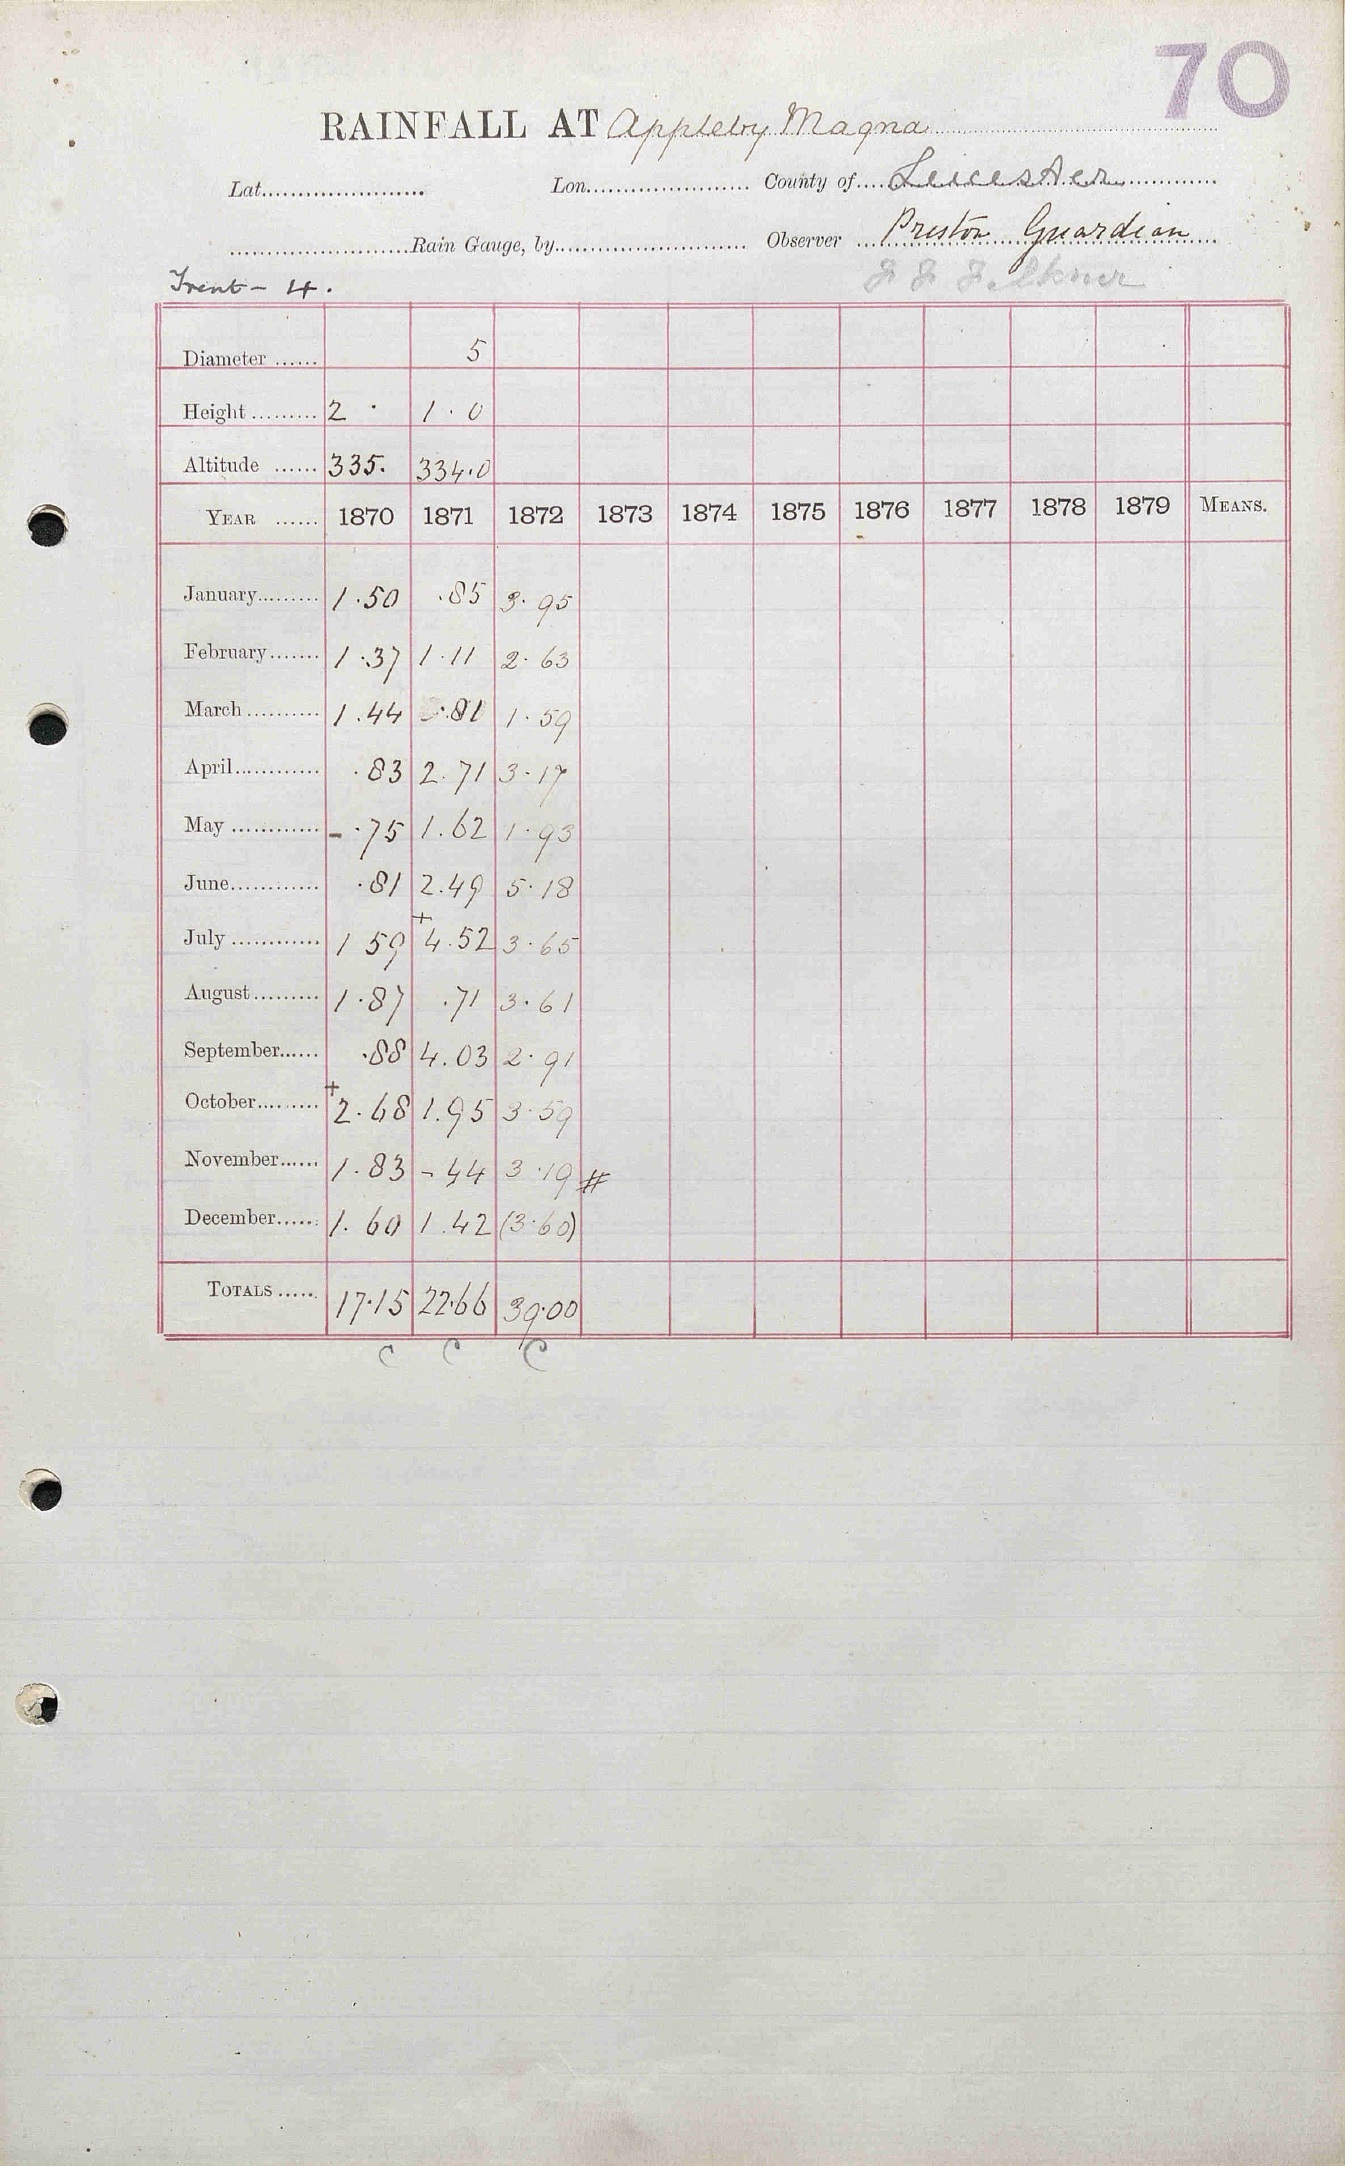 70
RAINFALL AT Appleby Magna
Lat. Lon. County of Leicester
Rain Gauge, by Observer Preston Guardian
Trent - 4.
Diameter ...... 5
Height ......... 2 · 1.0
Altitude ...... 335. 334.0
YEAR ...... 1870 1871 1872 1873 1874 1875 1876 1877 1878 1879 MEANS.
January ......... 1.50 .85 3.95
February ....... 1.37 1.11 2.63
March .......... 1.44 .81 1.59
April ............ .83 2.71 3.17
May ............ - .75 1.62 1.93
June ............ .81 2.49 5.18
July ............ 1 59 +4.52 3.65
August ......... 1.87 .71 3.61
September ...... .88 4.03 2.91
October ......... +2.68 1.95 3.59
November ...... 1.83 - 44 3.19 #
December ...... 1.60 1.42 (3.60)
TOTALS ...... 17.15 22.66 39.00
C C C